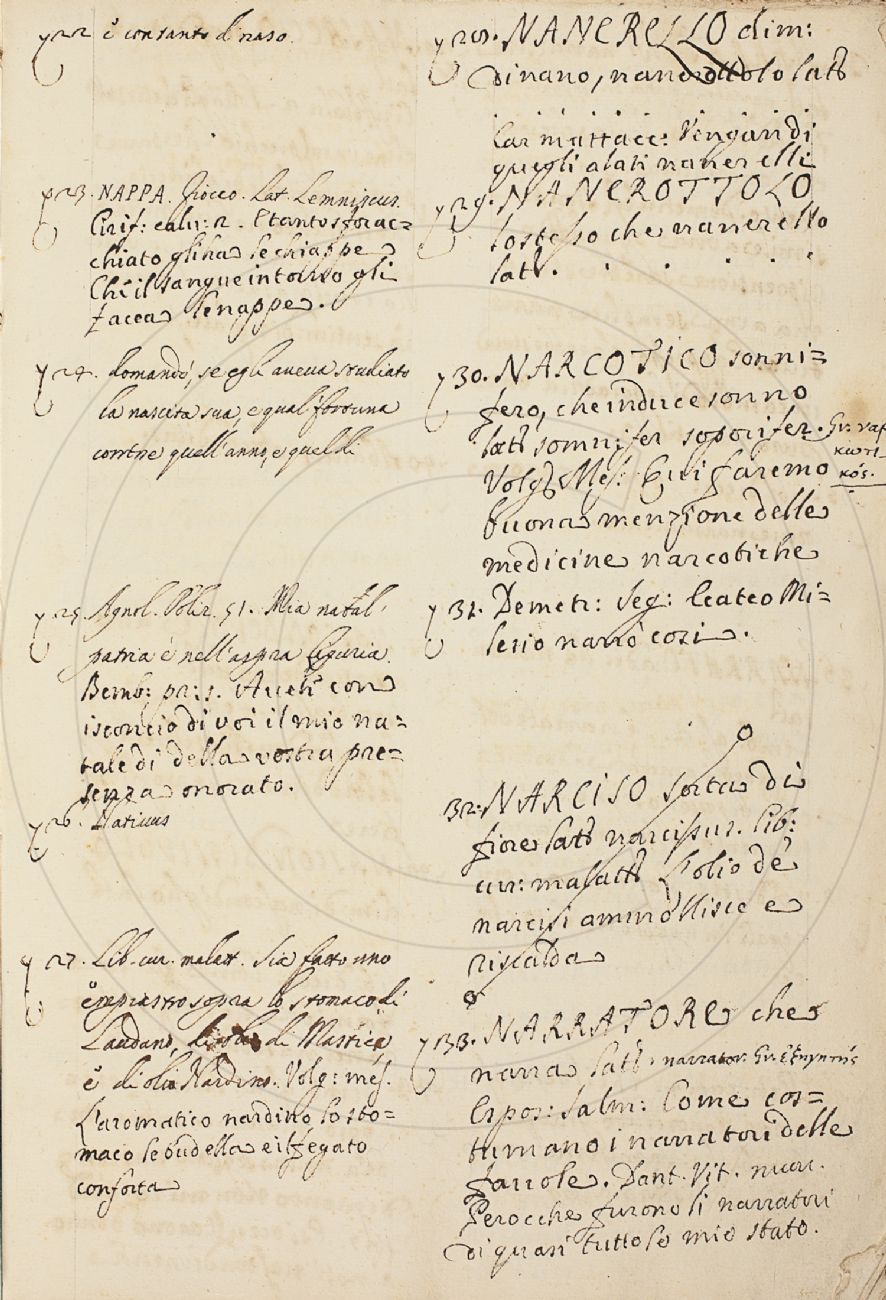 22 è contanto di naso.
23. NAPPA. Fiocco. Lat. Lemniscus.
Cirif: calu: 2. E tanto sforac=
chiato gli ha le chiappe
Ch'è il sangue intorno gli
facea le nappe.
24. Domandò, se egli aveva studiato
la nascita sua, e qual fortuna
corre quell'anno, e quel dì
25. Agnol. Poliz. 51. Mia natal
patria è nell'aspra Liguria.
Bemb: pr: 1. Aveti con
isconcio di voi il mio na=
tale dì della vostra pre=
senza onorato.
26. Nativus
27. Lib. cur. malatt. Sia fatto uno
empiastro sopra lo stomaco di
Laudano, di olio di Mastice
e di olio Nardino. Volg: mes.
L'aromatico nardino lo sto=
maco le budella e il fegato
conforta
28. NANERELLO dim:
di nano, nanerottolo latt
Car mattacc: Vengan di
quegli alati nanerelli
29. NANEROTTOLO
lo stesso che nanerello
latt. . . . . .
30. NARCOTICO sonni=
fero, che induce sonno
latt somnifer soporifer. Gr: ναρ
κωτι
κός.
Volg. Mes: Qui faremo
buona menzione delle
medicine narcotiche
31. Demetr: Seg: Ecateo Mi=
lesio narrò così.
32. NARCISO sorta di
fiore latt narcissus. Lib:
cur: malatt L'olio de
narcisi ammollisce e
riscalda
33. NARRATORE che
narra latt. narrator. Gr. ἐξηγητής
Espos: Salm: Come cos=
tumano i narratori delle
favole. Dant. Vit. nuov.
Perocche furono li narratori
di quasi tutto lo mio stato.